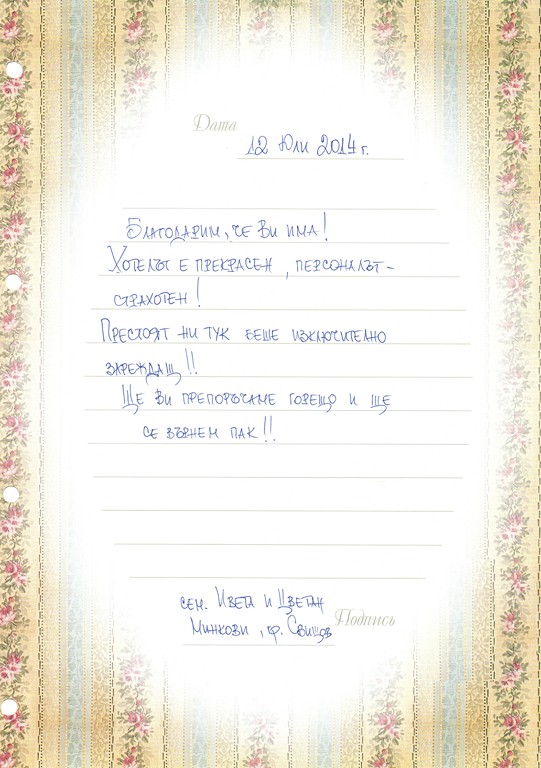 Дата
12 Юли 2014 г.
Благодарим, че Ви има!
Хотелът е прекрасен, персоналът –
страхотен!
Престоят ни тук беше изключително
зареждащ!!
Ще Ви препоръчаме горещо и ще
се върнем пак!!
сем. Ивета и Цветан
Подпись
Минкови, гр. Свищов